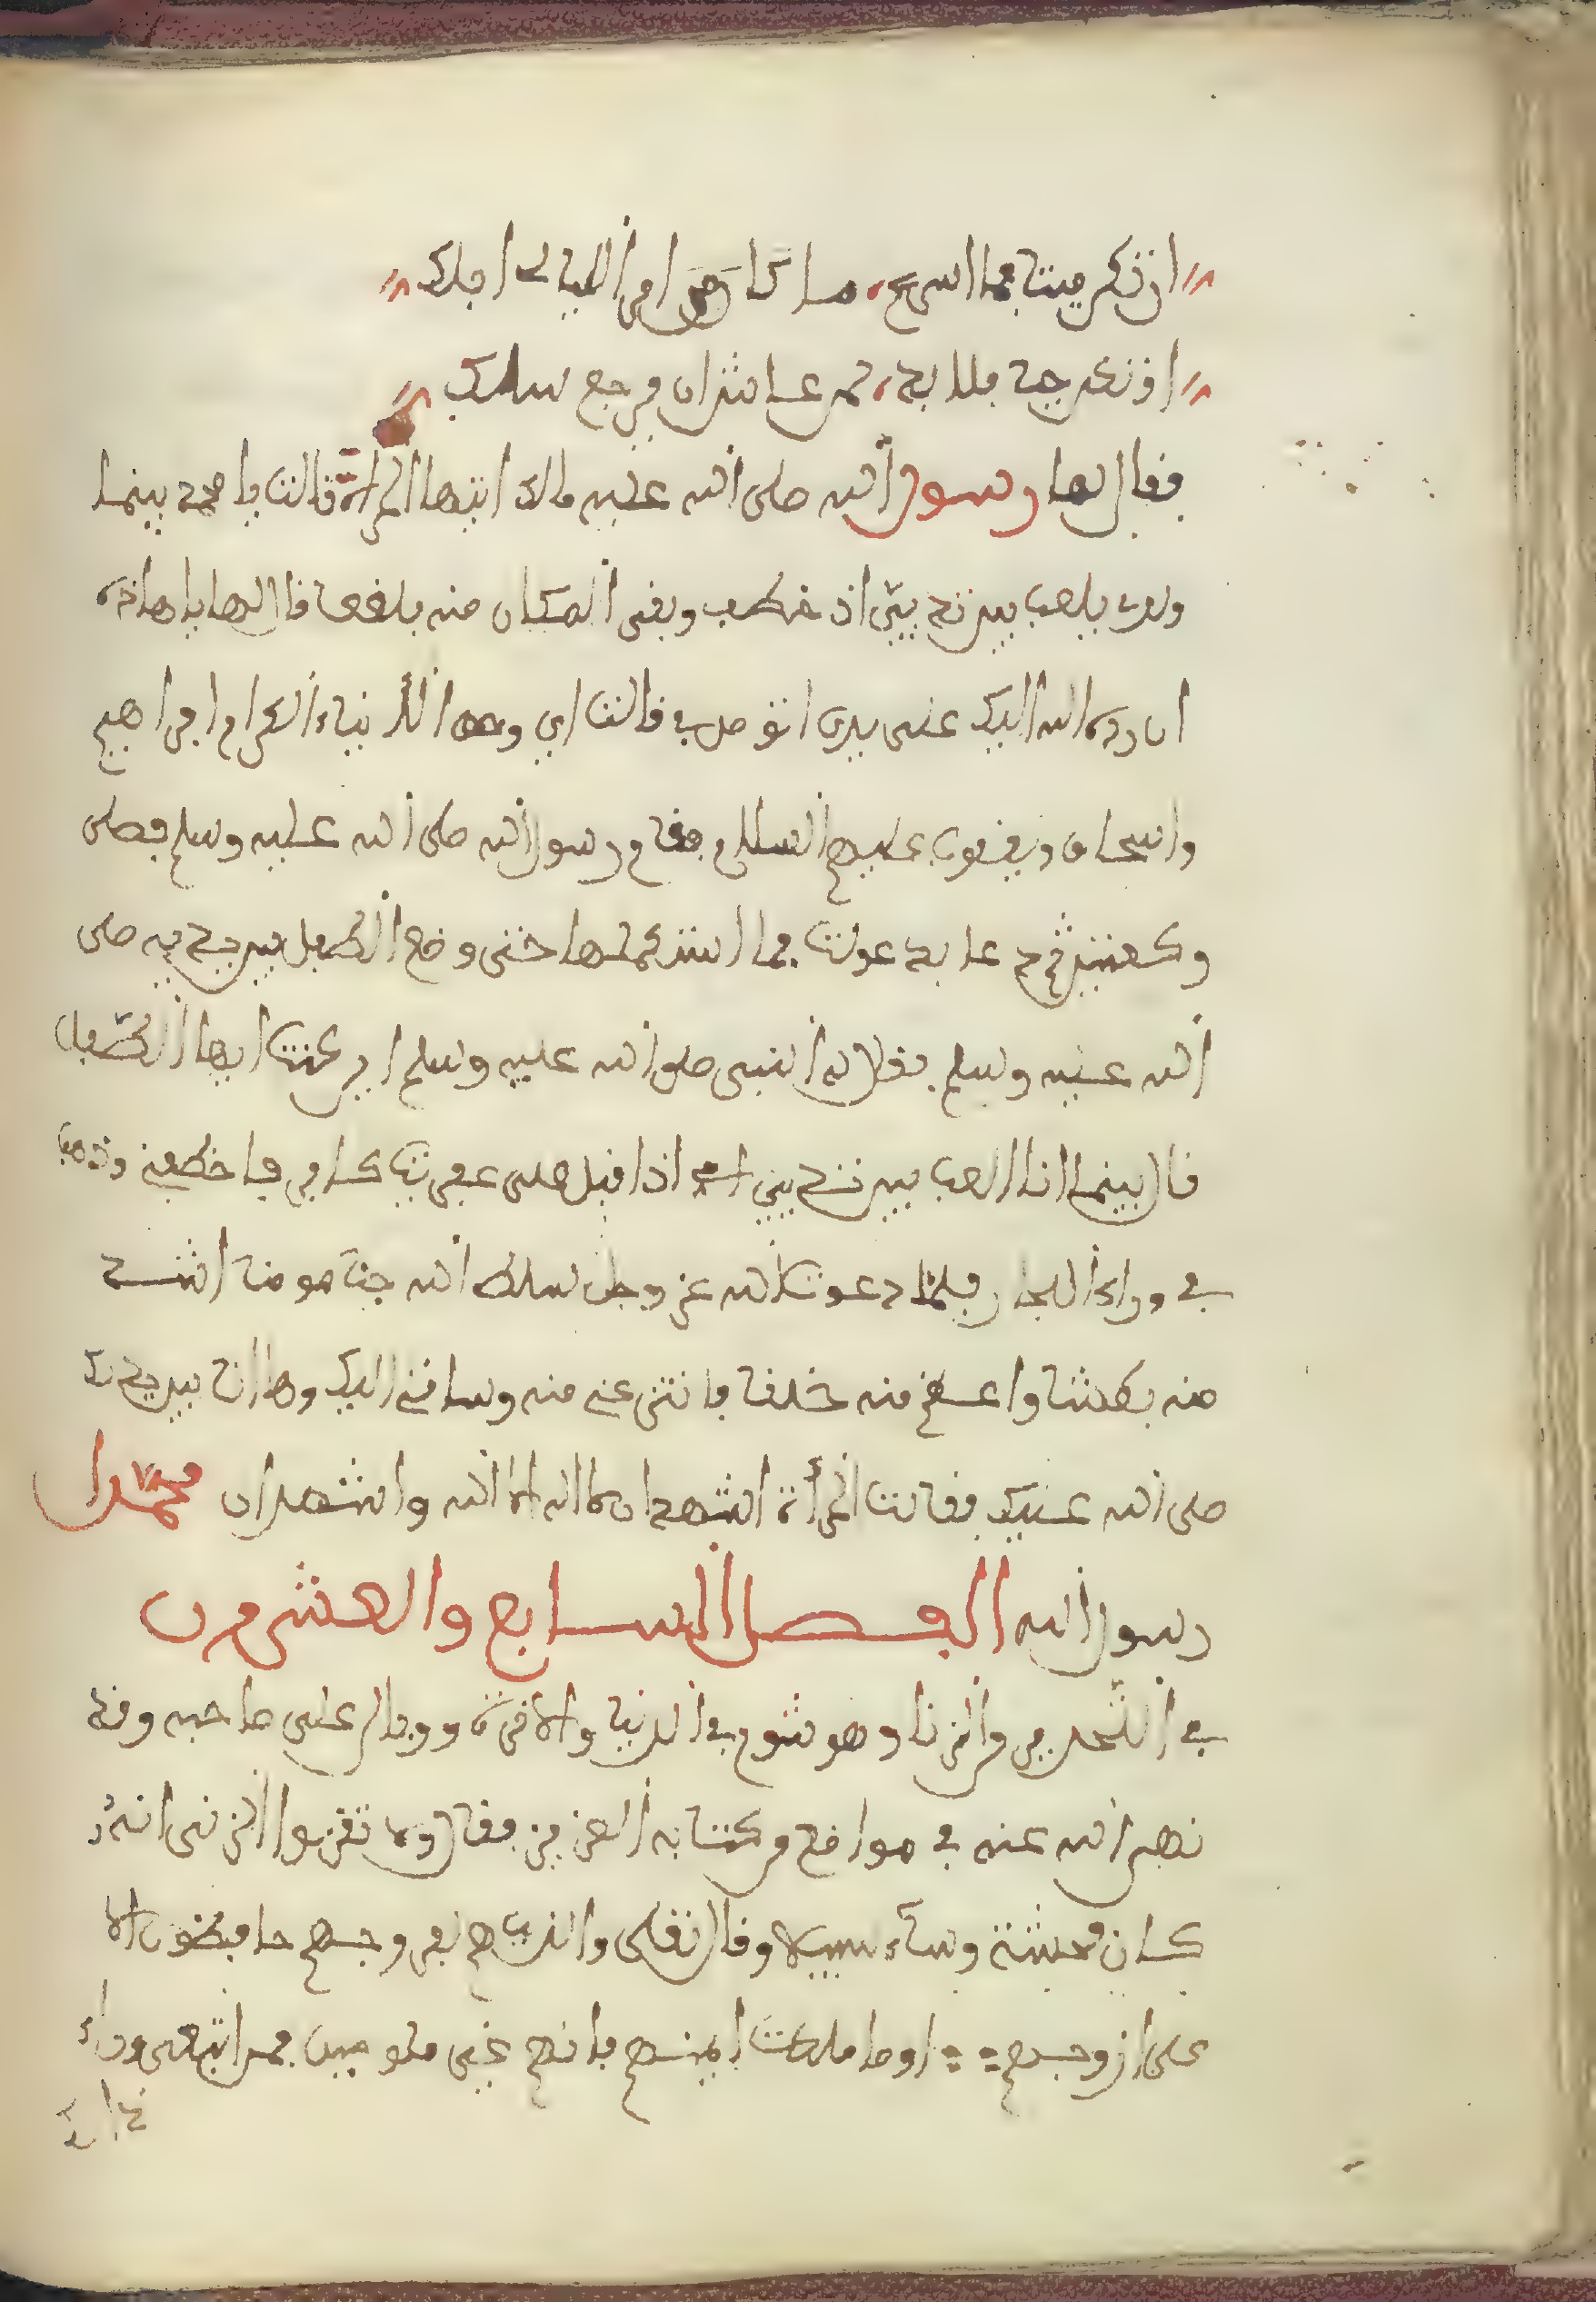 ان تكن ميتا فما اسرع، ما كا في الليالي اجلك
او تكن حيا فلا بد، لمن عاش ان يرجع سلمك
فقال لها رسول الله صلى الله عليه مالك ايتها المراة قالت يا محمد بينما
ولدي يلعب بين يدي اذ خطف وبقي المكان منه بلقعا قال لها يا هذه
ان رده الله اليك على يدي اتومن بي قالت اي وحق الانبياء الكرام ابراهيم
واسحاق ويعقوب عليهم السلام فقام رسول الله صلى الله عليه وسلم فصلى
ركعتين ثم دعا بدعوات فما استكملها حتى وضع الطفل بين يديه صلى
الله عليه وسلم فقال له النبي صلى الله عليه وسلم اين كنت ايها الطفل
قال بينما انا العب بين يدي امي اذ اقبل علي عفريت كافر فاخطفني وذهب
بي وراء البحار فلما دعوت الله عز وجل سلط الله جنا مومنا اشد
منه بطشا واعظم منه خلقا فانتزعني منه وساقني اليك وها انا بين يديك
صلى الله عليك فقالت المرأة اشهد ان لا اله الا الله واشهد ان محمدا
رسول الله الفصل السابع والعشرون
في التحذير من الزنا وهو شوم في الدنيا والاخرة ووبال على صاحبه وقد
نهى الله عنه في مواضع من كتابه العزيز فقال ولا تقربوا الزنى انه
كان فحشة وساء سبيلا وقال تعلى والذين هم لفروجهم حافظون الا
على ازوجهم او ما ملكت ايمنهم فانهم غير ملومين فمن ابتغى وراء